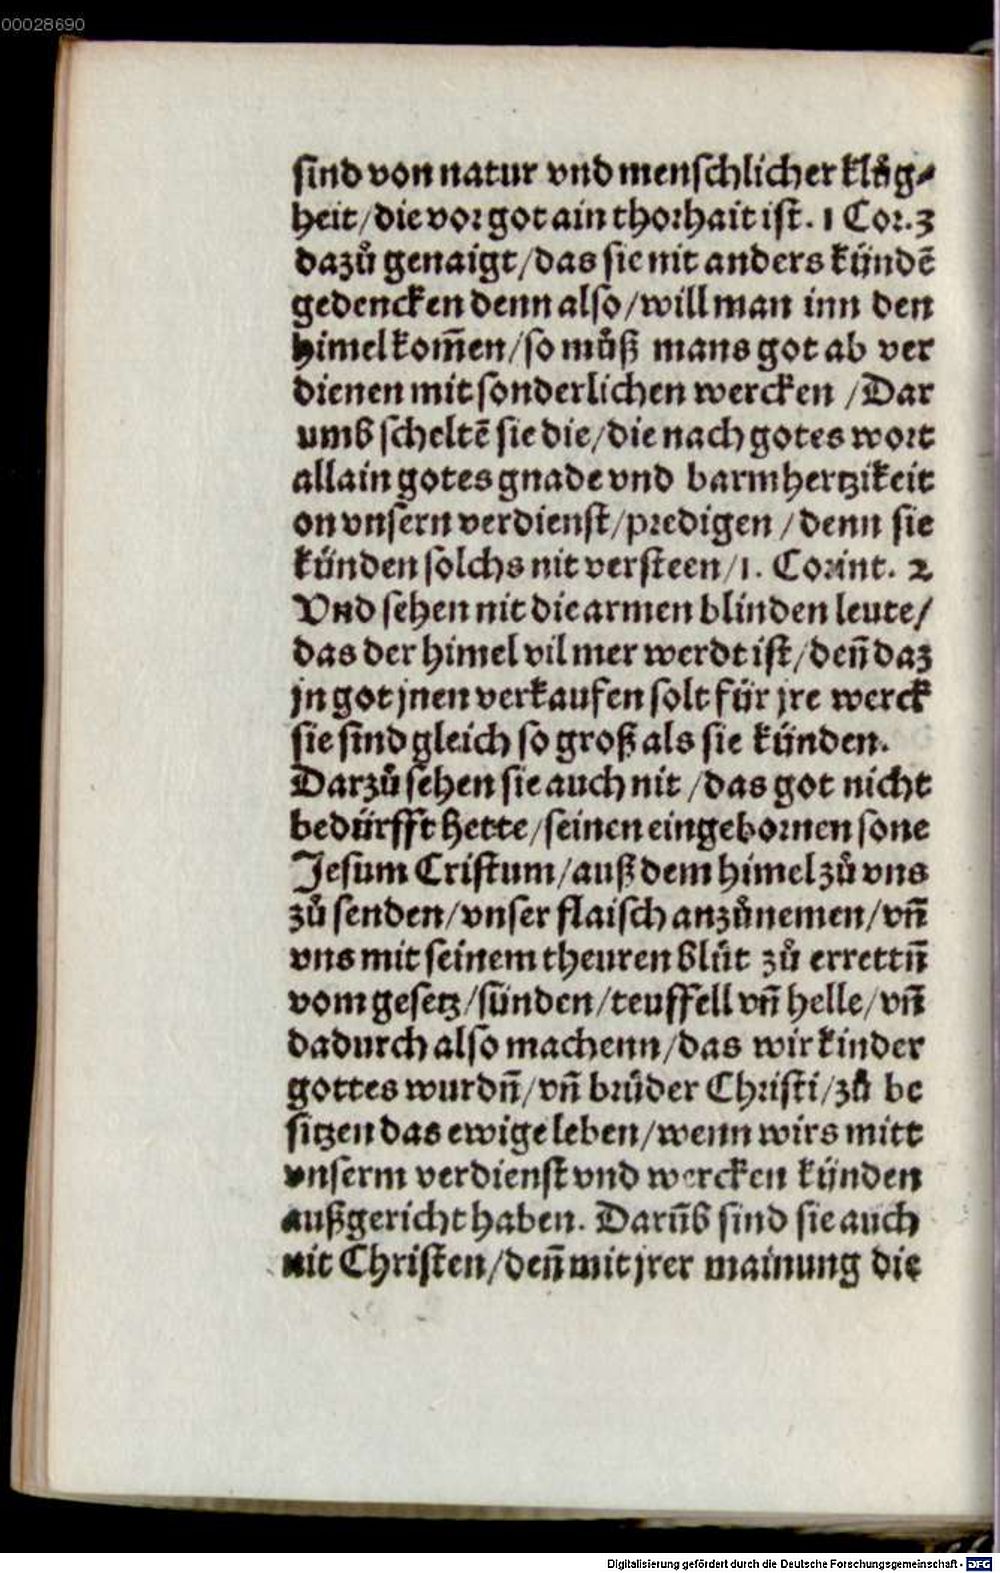 00028690
sind von natur vnd menschlicher klůg⸗
heit/die vor got ain thorhait ist. 1 Cor. 3
dazů genaigt/das sie nit anders kündē
gedencken denn also/will man inn den
himel kom̄en/so můß mans got ab ver
dienen mit sonderlichen wercken /Dar
umb scheltē sie die/die nach gotes wort
allain gotes gnade vnd barmhertzikeit
on vnsern verdienst/predigen /denn sie
künden solchs nit versteen/1. Corint. 2
Vnd sehen nit die armen blinden leute/
das der himel vil mer werdt ist/den̄ daz
jn got jnen verkaufen solt für jre werck
sie sind gleich so groß als sie künden.
Darzů sehen sie auch nit /das got nicht
bedürfft hette/seinen eingebornen sone
Jesum Cristum/auß dem himel zů vns
zů senden/vnser flaisch anzůnemen/vn̄
vns mit seinem theuren blůt zů errettn̄
vom gesetz/sünden/teuffell vn̄ helle/vn̄
dadurch also machenn/das wir kinder
gottes wurdn̄/vn̄ brüder Christi/zů be
sitzen das ewige leben/wenn wirs mitt
vnserm verdienst vnd wercken künden
außgericht haben. Darūb sind sie auch
nit Christen/den̄ mit jrer mainung die
Digitalisierung gefördert durch die Deutsche Forschungsgemeinschaft - DFG